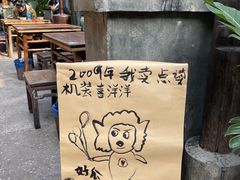 2009年我卖点赞
机装喜洋洋